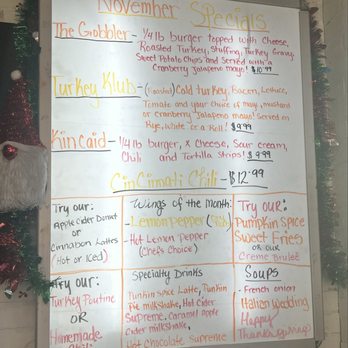 November Specials
The Gobbler - 1/4 lb burger topped with Cheese,
Roasted Turkey, Stuffing, Turkey Gravy,
Sweet Potato Chips and Served with a
Cranberry Jalapeno mayo! $10.99
Turkey Klub - (Roasted) Cold turkey, Bacon, Lettuce,
Tomato and your choice of mayo, mustard
or Cranberry Jalapeno mayo! Served on
Rye, White or a Roll! $9.99
Kincaid - 1/4 lb burger, x Cheese, Sour cream,
Chili and Tortilla Strips! $9.99
Cincinnati Chili - $12.99
Try our:
Apple Cider Donut
or
Cinnabon Lattes
(Hot or Iced)
Wings of the Month:
- Lemon Pepper
- Hot Lemon Pepper
(Chef's Choice)
Try our:
Pumpkin Spice
Sweet Fries
or our
Creme Brulee
Try our:
Turkey Poutine
OR
Homemade
Specialty Drinks
Pumpkin Spice Latte, Pumpkin
Pie milkshake, Hot Cider
Supreme, Caramel apple
Cider milkshake,
Hot Chocolate Supreme
Soups
- French onion
- Italian Wedding
Happy
Thanksgiving